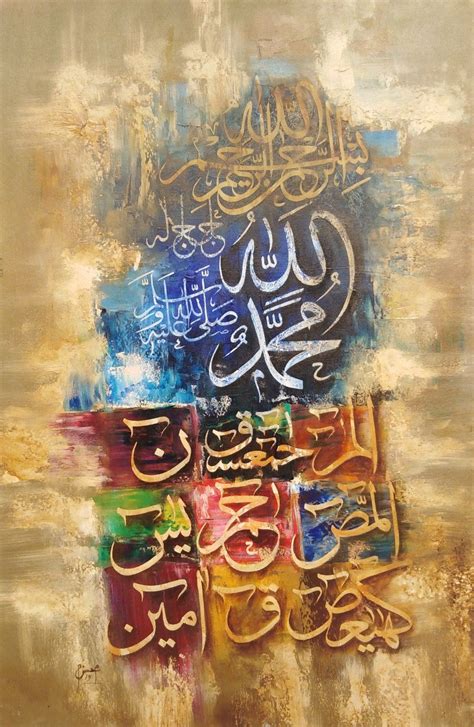 بسم الله الرحمن الرحيم
الله جل جلاله
محمد صلى الله عليه وسلم
المر حمعسق ن
المص حم يس
كهيعص ق امين